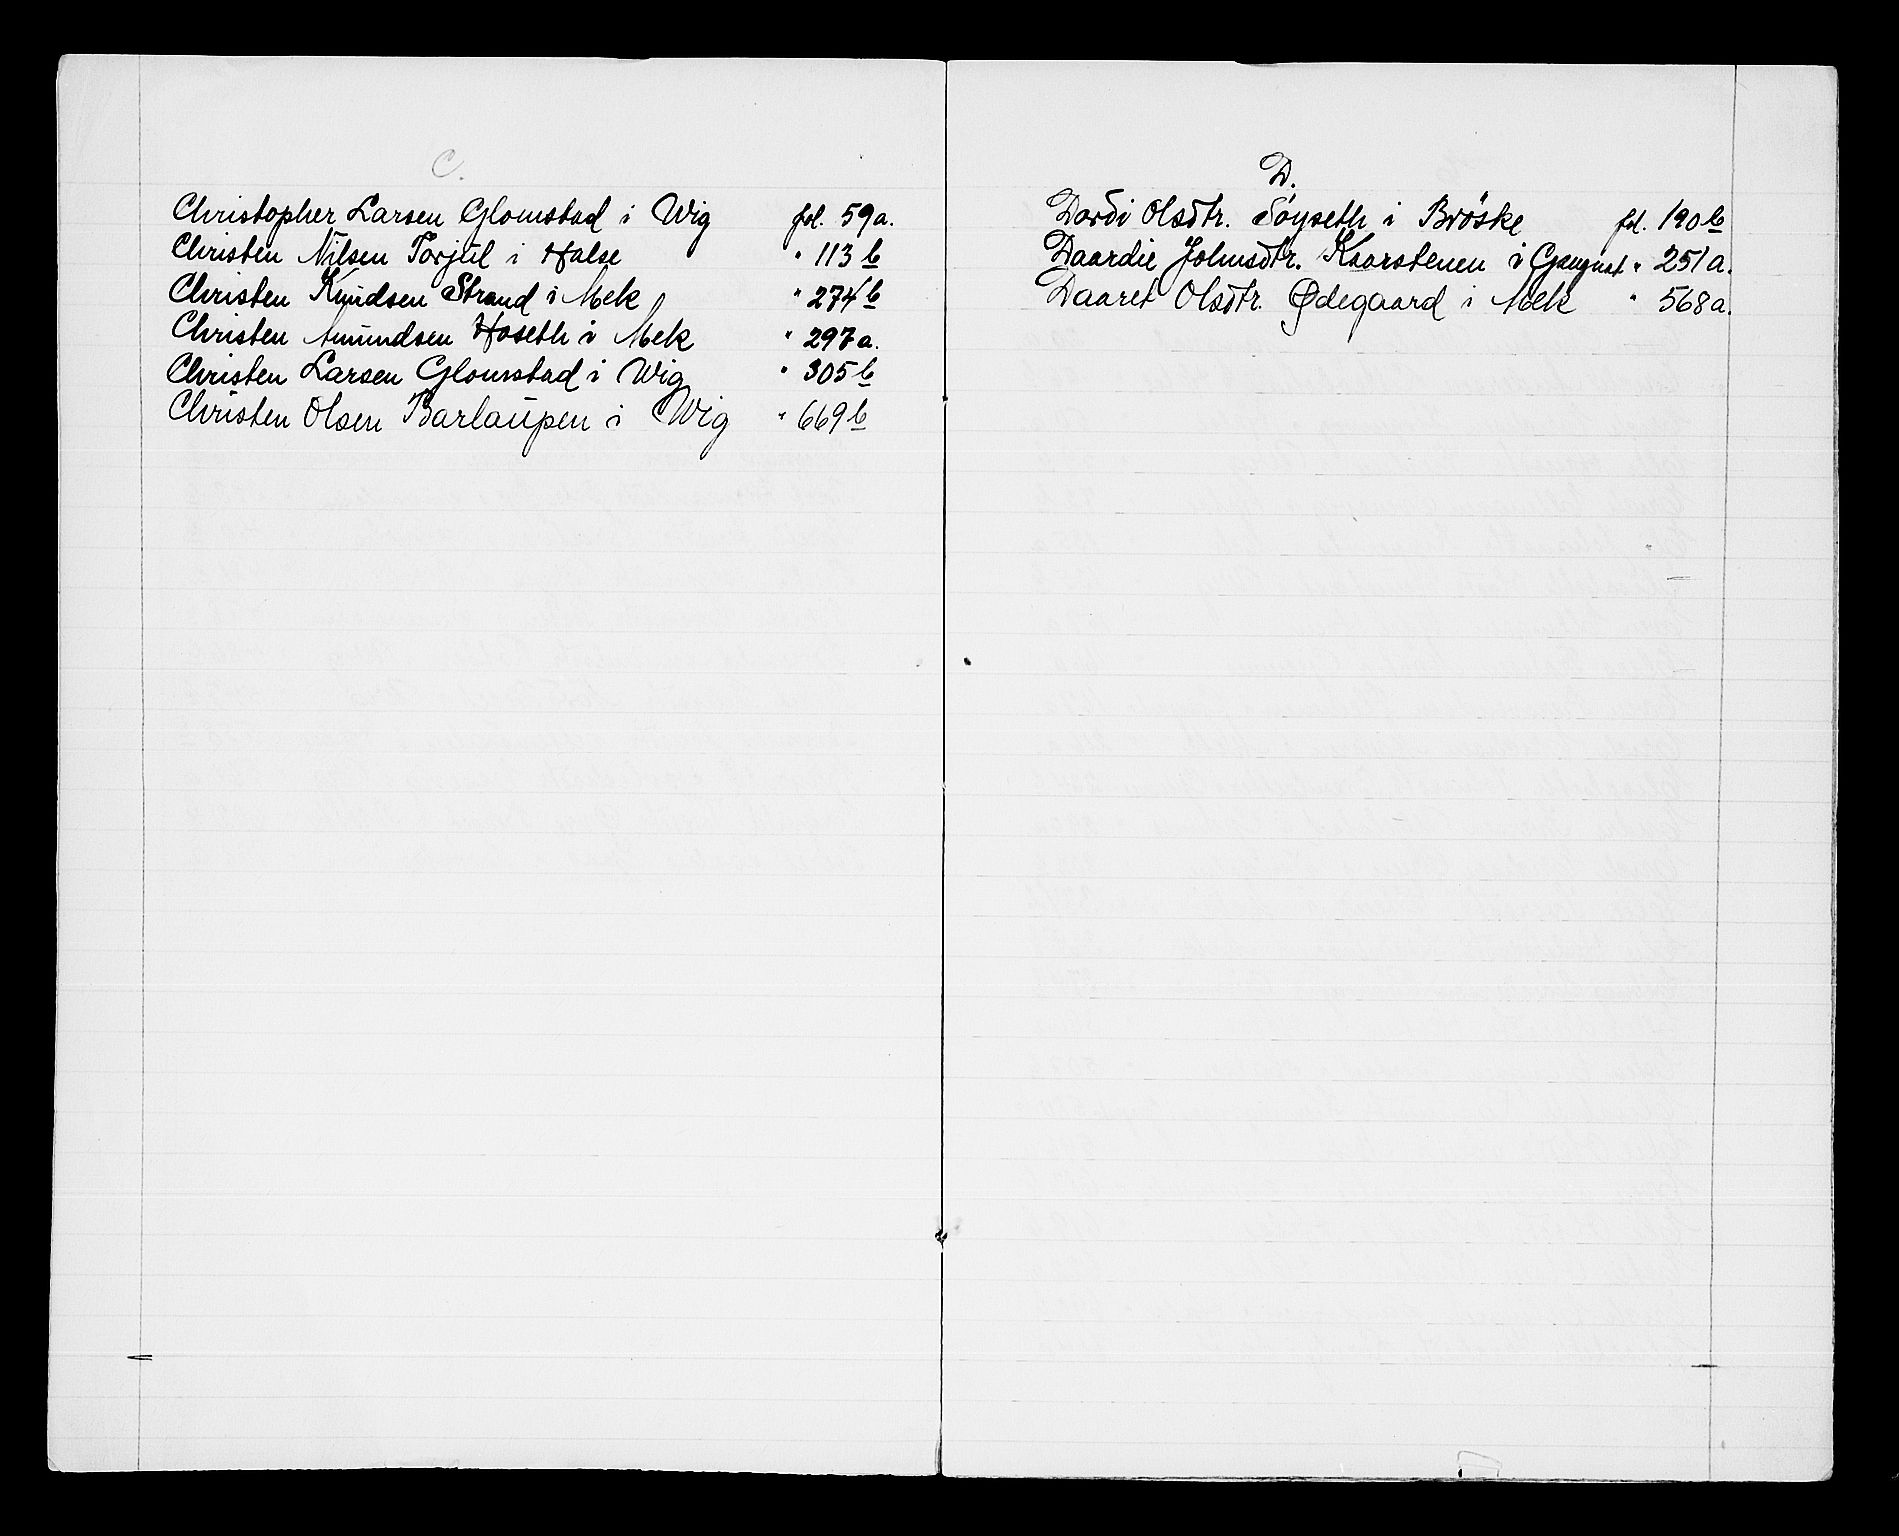 C.
Christopher Larsen Glomstad i Wig fol. 59a.
Christen Nilsen Torjül i Halse " 113 b
Christen Knüdsen Strand i Mek " 274 b
Christen Amündsen Hoseth i Mek " 297 a.
Christen Larsen Glomstad i Wig " 305 b
Christen Olsen Barlaüpen i Wig " 669 b
D.
Dordi Olsdtr. Søyseth i Bröske fol. 190 b
Daardie Johnsdtr. Kaarstenen i " 251 a.
Daaret Olsdtr. Ødegaard i Mek " 568 a.